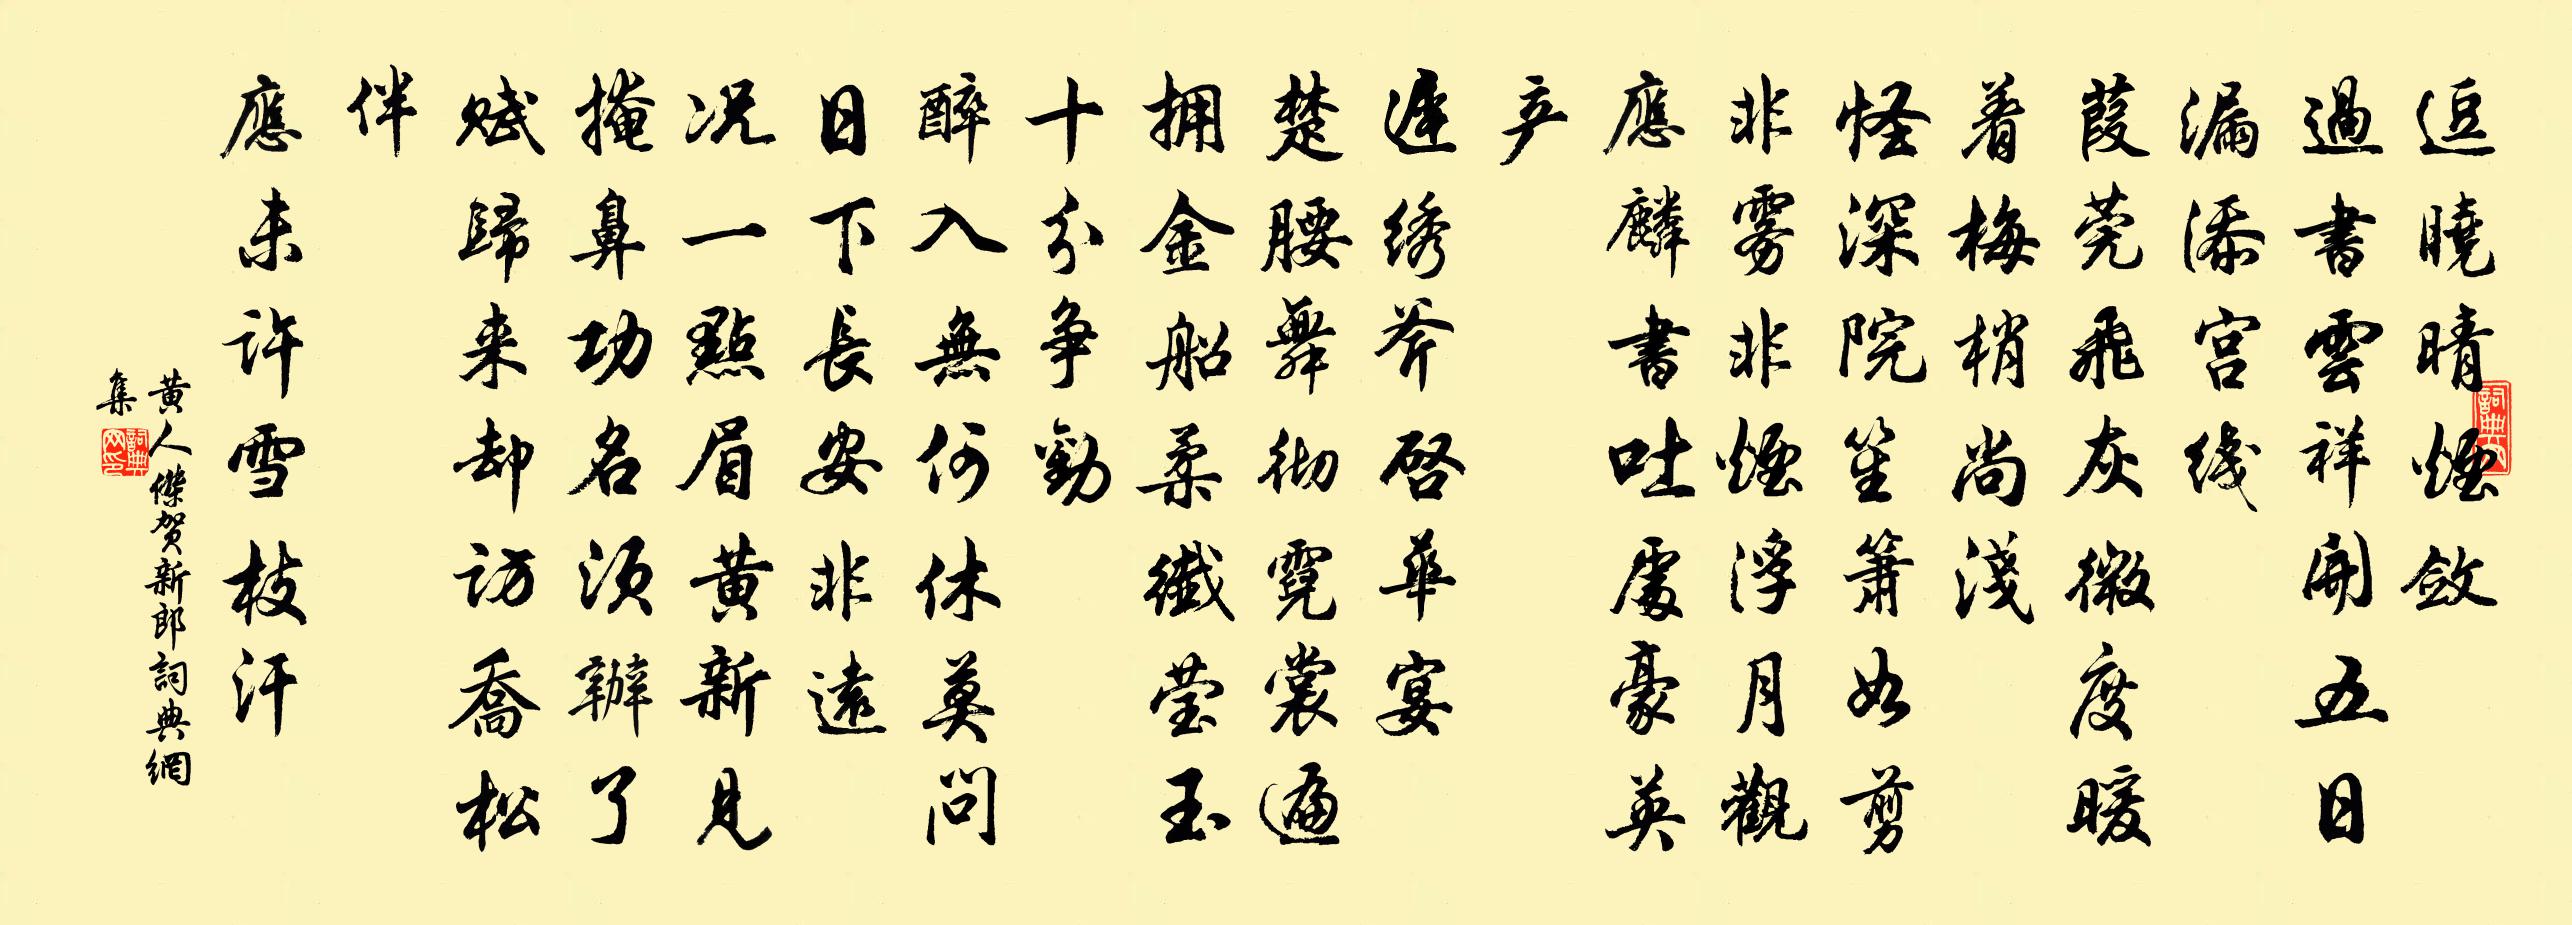 逗曉晴煙斂
過書雲祥開五日
漏添宫线
葭莞飛灰微度暖
着梅梢尚淺
怪深院笙簫如剪
非雾非煙浮月觀
應麟書吐處豪英
产
遲绣斧啓華宴
楚腰舞彻霓裳遍
拥金船柔纖莹玉
十分争勸
醉入無何休莫問
日下長安非遠
况一點眉黄新見
掩鼻功名须辦了
赋歸来却访喬松
伴
應未许雪枝汗
黄人傑贺新郎詞典網
集
詞典
詞典网印